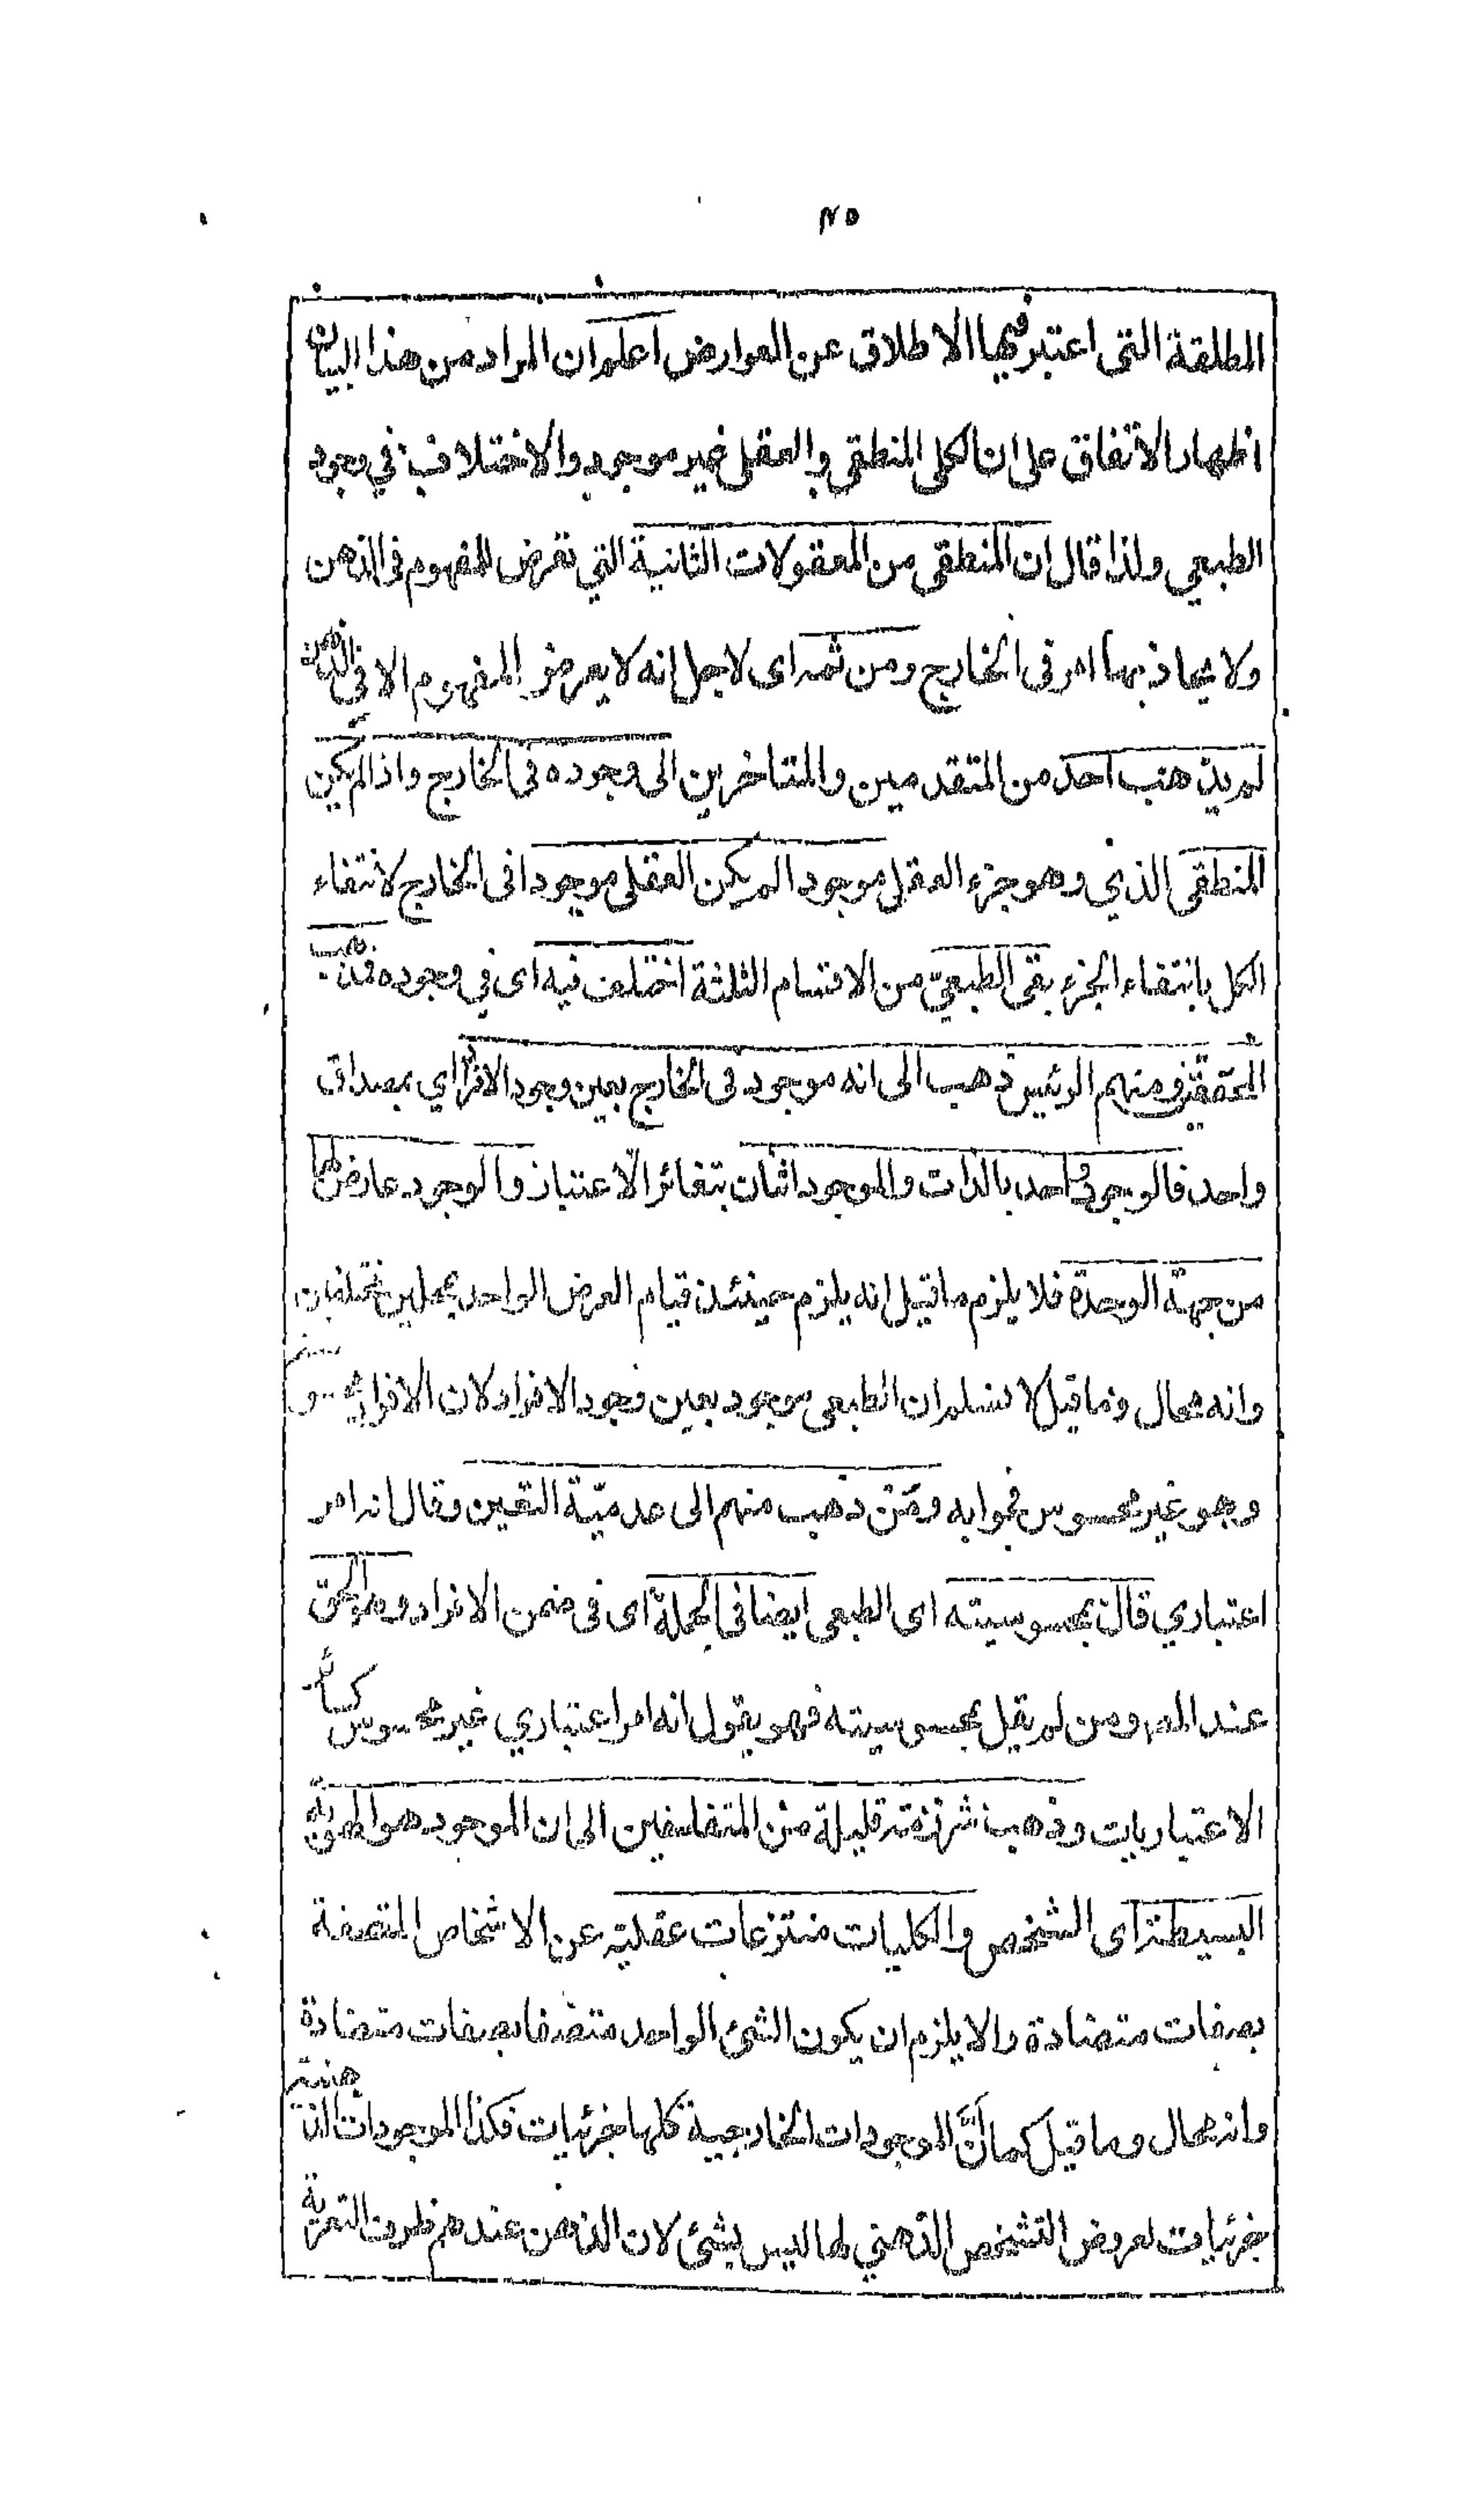 ٢٥
المطلقة التى اعتبر فيها الاطلاق عن العوارض اعلم ان المراد من هذا البيان
اظهار الاتفاق على ان الكلى المنطقى والعقلى غير موجود والاختلاف فى وجود
الطبعي ولذا قال ان المنطقى من المعقولات الثانية التي تعرض للمفهوم فى الذهن
ولا يحاذ بها امر فى الخارج ومن ثمه اى لاجل انه لا يعرض المفهوم الا فى الذهن
لم يذهب احد من المتقدمين والمتاخرين الى وجوده فى الخارج واذا لم يكن
المنطقى الذي وهو جزء العقلى موجودا لم يكن العقلى موجودا فى الخارج لانتفاء
الكل بانتفاء الجزء بقى الطبعيّ من الاقسام الثلثة اختلف فيه اى فى وجوده فذهب
المحققون ومنهم الرئيس ذهب الى انه موجود فى الخارج بعين وجود الافراد اي بمصداق
واحد فالوجود واحد بالذات والموجود اثنان بتغائر الاعتبار والوجود عارض لهما
من جهة الوحدة فلا يلزم ما قيل انه يلزم حينئذ قيام العرض الواحد بمحلين مختلفين
وانه محال وما قيل لا نسلم ان الطبعى موجود بعين وجود الافراد لان الافراد
وهو غير محسوس فجوابه ومَن ذهب منهم الى عدميّة التعين وقال انه امر
اعتباري قال بمحسوسيته اى الطبعى ايضا فى الجملة اى فى ضمن الافراد وهو الحق
عند المص ومن لم يقل بمحسوسيته فهو يقول انه امر اعتباري غير محسوس كسائر
الاعتباريات وذهب شرذمة قليلة من المتفلسفين الى ان الموجود هو الهوية
البسيطة اى الشخص والكليات منتزعات عقلية عن الاشخاص المتصفة
بصفات متضادة والا يلزم ان يكون الشئ الواحد متصفا بصفات متضادة
وانه محال وما قيل كما اَنَّ الموجودات الخارجية كلها جزئيات فكذا الموجودات الذهنية
جزئيات لعروض التشخص الذهني لها ليس بشئ لان الذهن عندهم ظرف التعرية